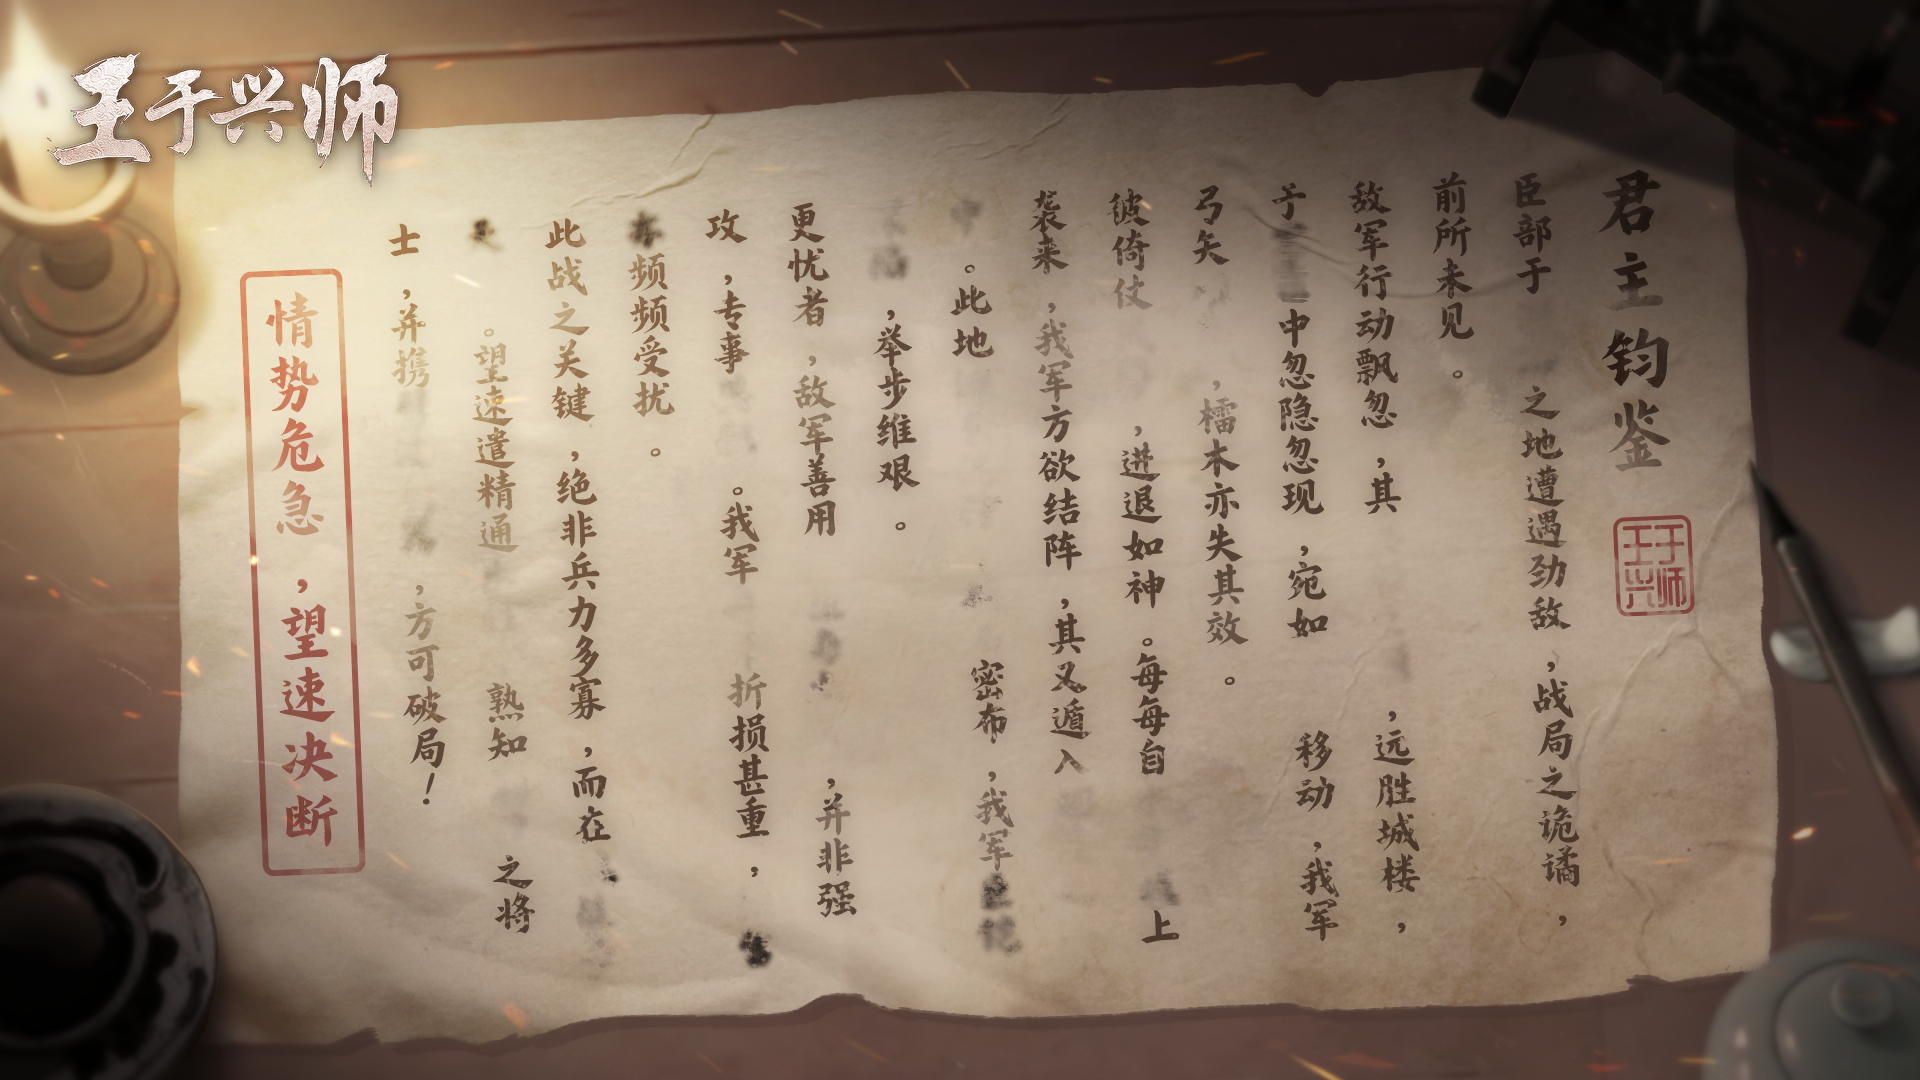 王于兴师
君主钧鉴
王于兴师
臣部于 之地遭遇劲敌，战局之诡谲，
前所未见。
敌军行动飘忽，其 ，远胜城楼，
于 中忽隐忽现，宛如 移动，我军
弓矢 ，檑木亦失其效。
彼倚仗 ，进退如神。每每自 上
袭来，我军方欲结阵，其又遁入
。此地 密布，我军
，举步维艰。
更忧者，敌军善用 ，并非强
攻，专事 。我军 折损甚重，
频频受扰。
此战之关键，绝非兵力多寡，而在
。望速遣精通 熟知 之将
士，并携 ，方可破局！
情势危急，望速决断